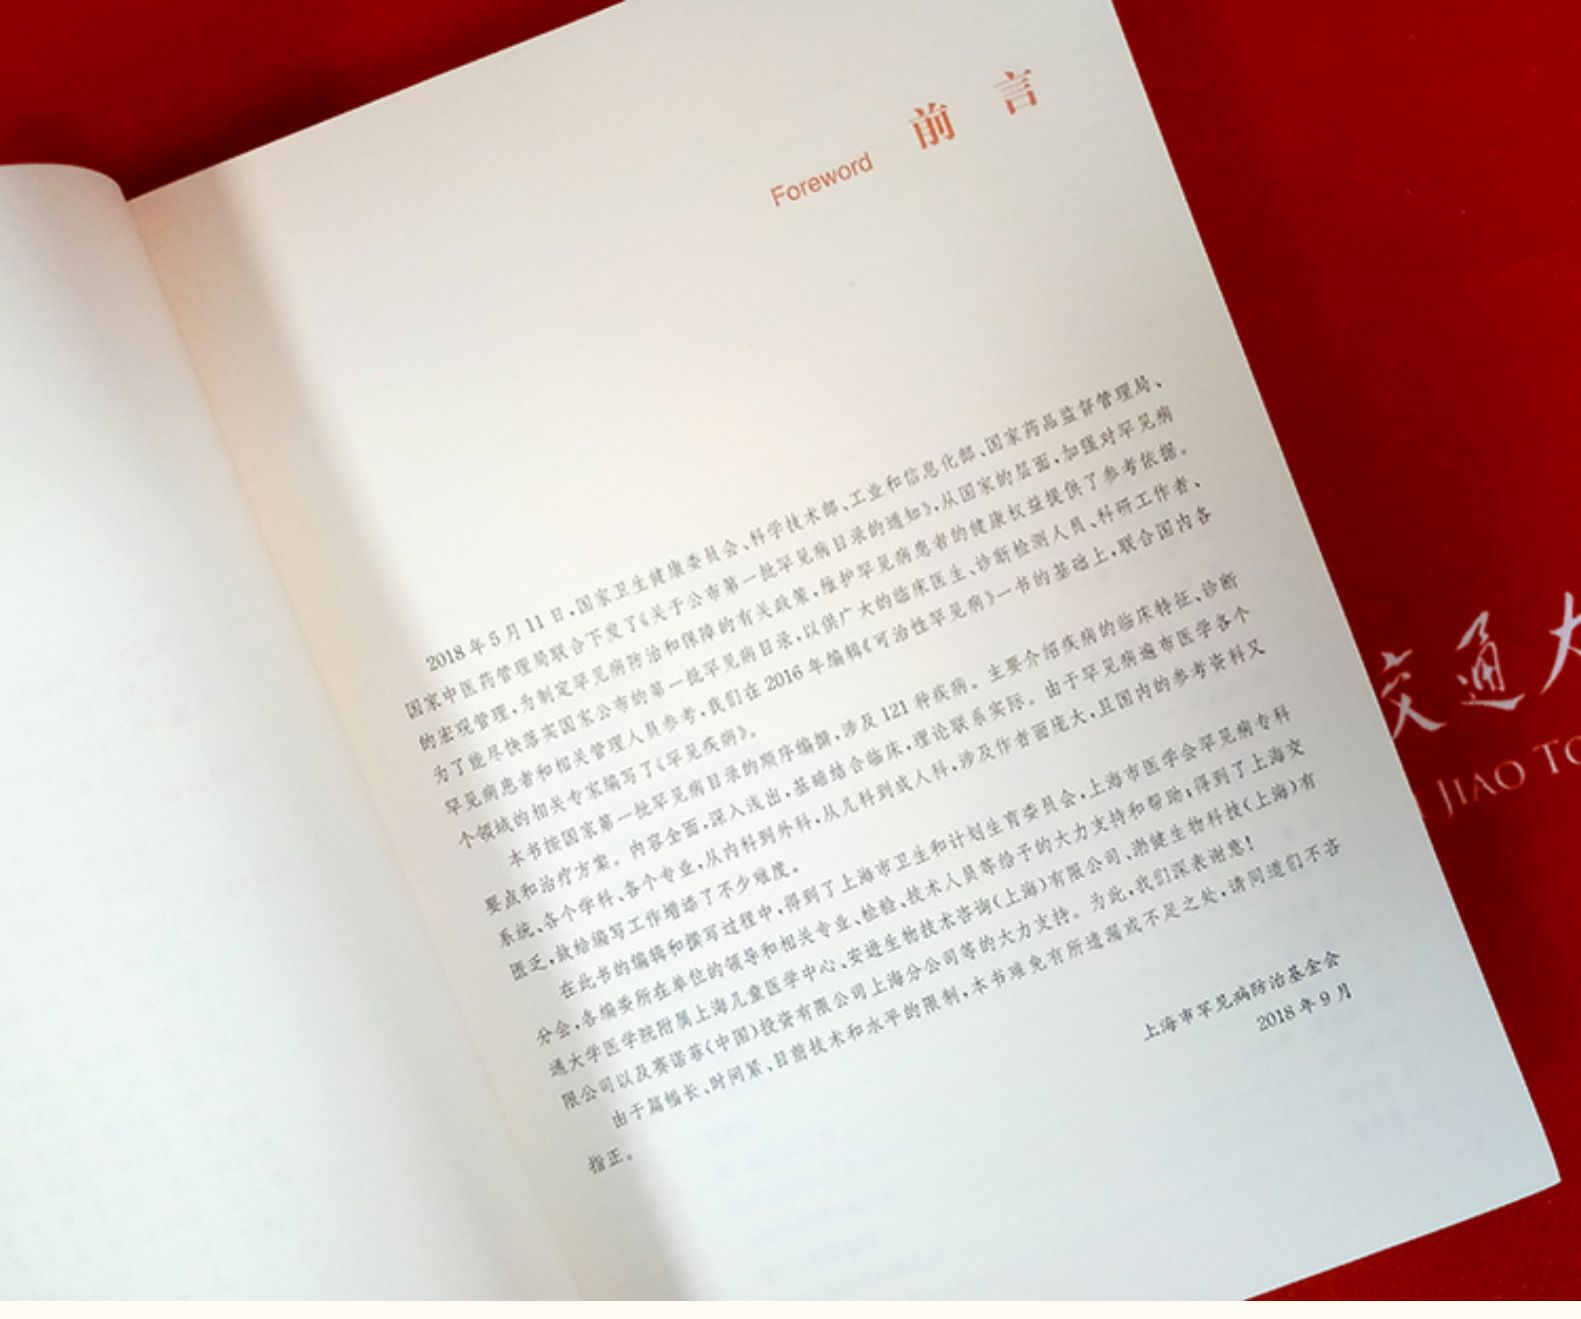 前言
Foreword
2018年5月11日,国家卫生健康委员会、科学技术部、工业和信息化部、国家药品监督管理局、
国家中医药管理局联合下发了《关于公布第一批罕见病目录的通知》,从国家的层面,加强对罕见病
的宏观管理,为制定罕见病防治和保障的有关政策,维护罕见病患者的健康权益提供了参考依据。
为了能尽快落实国家公布的第一批罕见病目录,以供广大的临床医生、诊断检测人员、科研工作者、
罕见病患者和相关管理人员参考,我们在2016年编辑《可治性罕见病》一书的基础上,联合国内各
个领域的相关专家编写了《罕见疾病》。
本书按国家第一批罕见病目录的顺序编辑,涉及121种疾病。主要介绍疾病的临床特征、诊断
要点和治疗方案。内容全面,深入浅出,基础结合临床,理论联系实际。由于罕见病遍布医学各个
系统、各个学科、各个专业,从内科到外科,从儿科到成人科,涉及作者面庞大,且国内的参考资料又
匮乏,故给编写工作增添了不少难度。
在此书的编辑和撰写过程中,得到了上海市卫生和计划生育委员会,上海市医学会罕见病专科
分会,各编委所在单位的领导和相关专业、检验、技术人员等给予的大力支持和帮助;得到了上海交
通大学医学院附属上海儿童医学中心、安进生物技术咨询(上海)有限公司、渤健生物科技(上海)有
限公司以及赛诺菲(中国)投资有限公司上海分公司等的大力支持。为此,我们深表谢意!
由于篇幅长、时间紧、目前技术和水平的限制,本书难免有所遗漏或不足之处,请同道们不吝
指正。
上海市罕见病防治基金会
2018年9月
交通大
JIAO TO